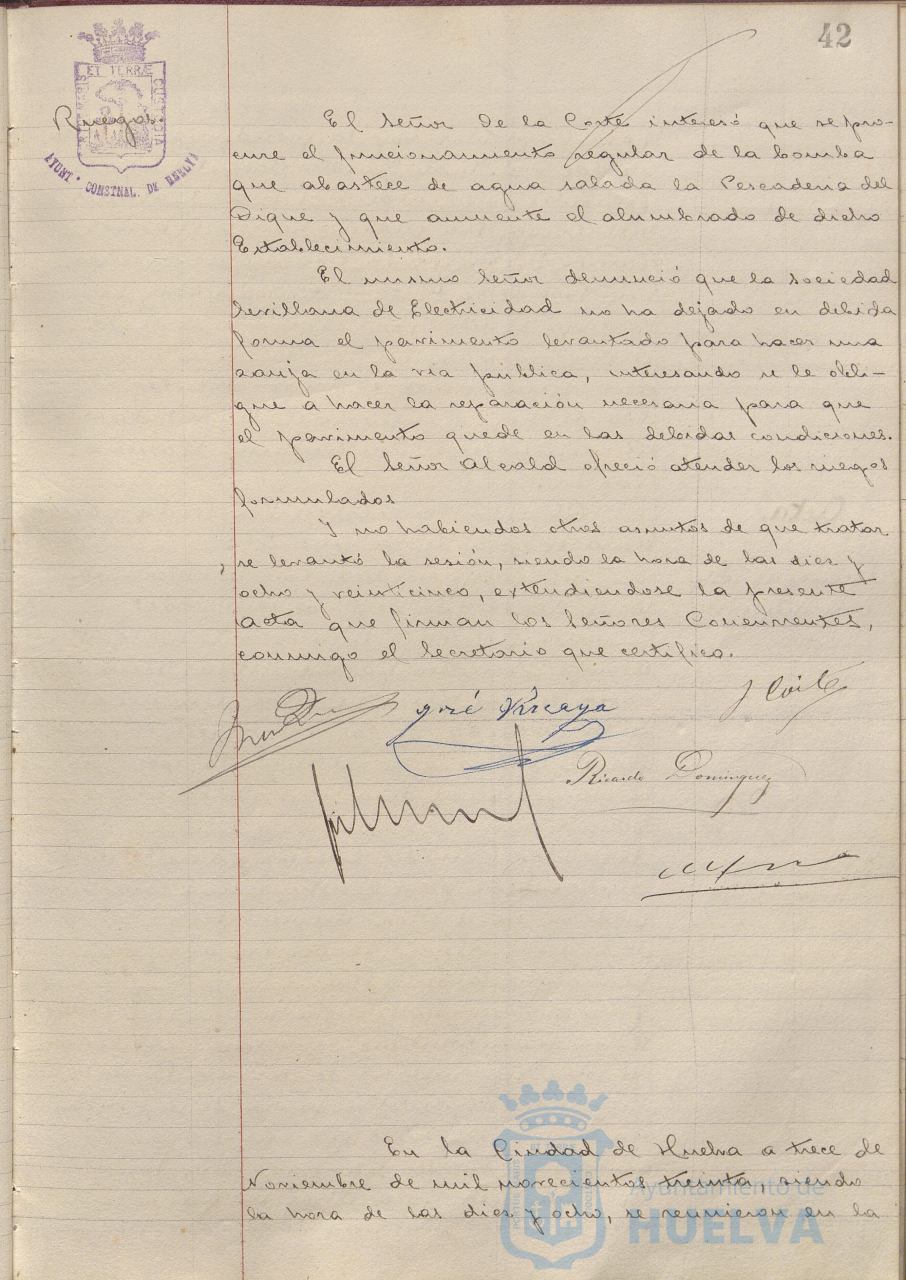 42
ET TERRÆ
CUSTODIA
AYUNT. CONSTNAL. DE HUELVA
Ruegos.
El Señor De la Corte interesó que se pro-
cure el funcionamiento regular de la bomba
que abastece de agua salada la Pescaderia del
Dique y que aumente el alumbrado de dicho
Establecimiento.
El mismo Señor denunció que la Sociedad
Sevillana de Electricidad no ha dejado en debida
forma el pavimento levantado para hacer una
zanja en la via pública, interesando se le obli-
gue a hacer la reparación necesaria para que
el pavimento quede en las debidas condiciones.
El Señor Alcald ofreció atender los ruegos
formulados
Y no habiendos otros asuntos de que tratar
, se levantó la sesión, siendo la hora de las diez y
ocho y veinticinco, extendiendose la presente
acta que firman los Señores Concurrentes,
conmigo el Secretario que certifico.
José Vizcaya
J Corte
Ricardo Dominguez
En la Ciudad de Huelva a trece de
Noviembre de mil novecientos treinta, siendo
la hora de las diez y ocho, se reunieron en la
Ayuntamiento de
HUELVA